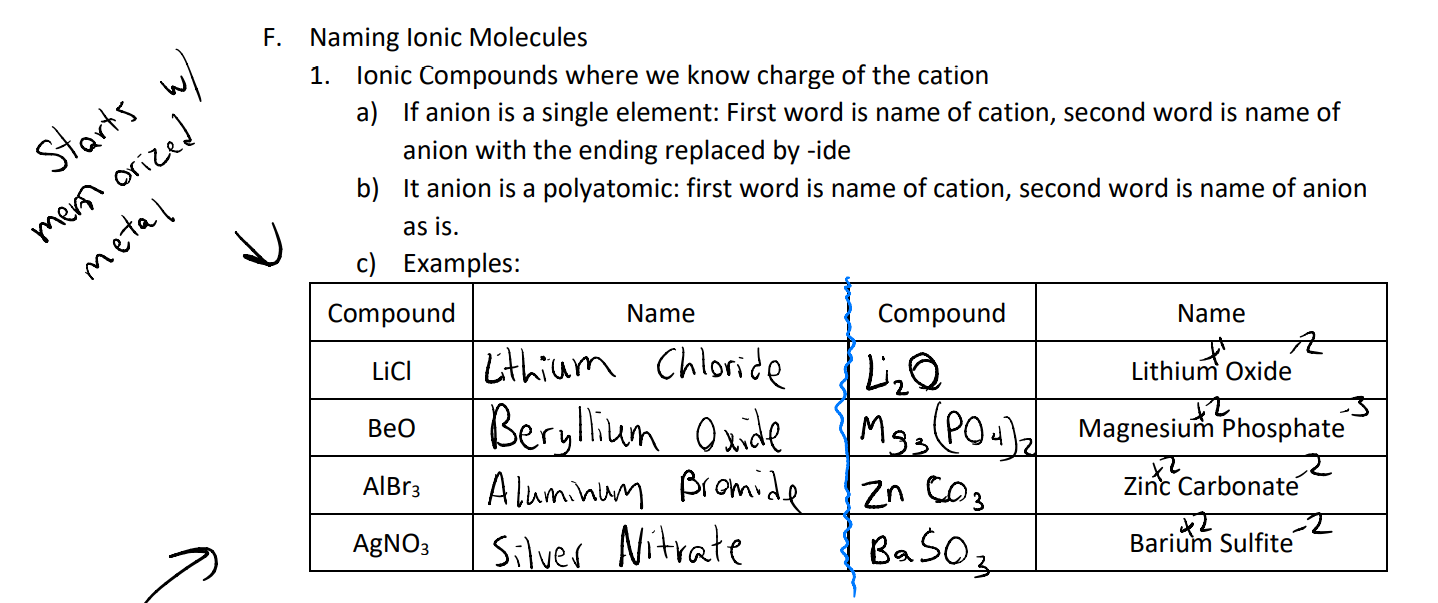 F. Naming Ionic Molecules
1. Ionic Compounds where we know charge of the cation
a) If anion is a single element: First word is name of cation, second word is name of
anion with the ending replaced by -ide
b) It anion is a polyatomic: first word is name of cation, second word is name of anion
as is.
c) Examples:
Starts w/
memorized
metal
Compound Name Compound Name
LiCl Lithium Chloride Li₂O Lithium⁺¹ Oxide⁻²
BeO Beryllium Oxide Mg₃(PO₄)₂ Magnesium⁺² Phosphate⁻³
AlBr₃ Aluminum Bromide ZnCO₃ Zinc⁺² Carbonate⁻²
AgNO₃ Silver Nitrate BaSO₃ Barium⁺² Sulfite⁻²